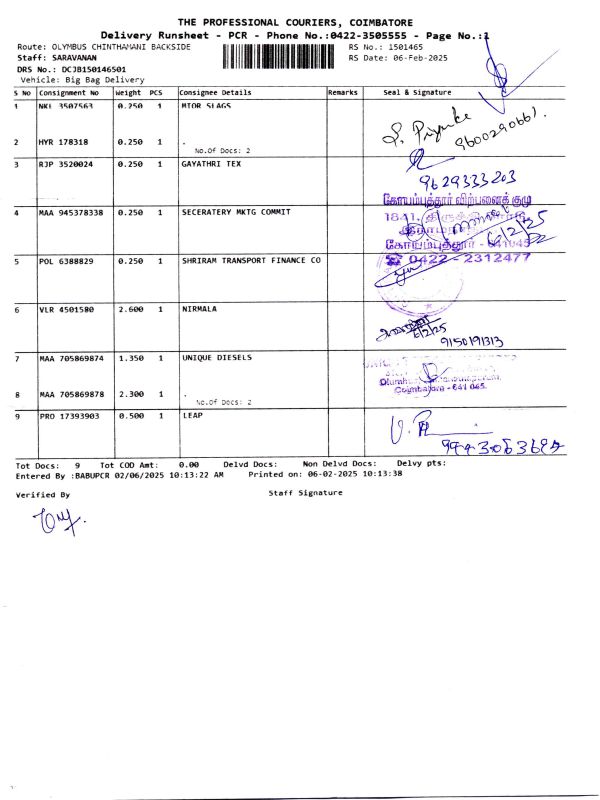 THE PROFESSIONAL COURIERS, COIMBATORE
Delivery Runsheet - PCR - Phone No.:0422-3505555 - Page No.:1
Route: OLYMBUS CHINTHAMANI BACKSIDE RS No.: 1501465
Staff: SARAVANAN RS Date: 06-Feb-2025
DRS No.: DCJB150146501
Vehicle: Big Bag Delivery
S No Consignment No Weight PCS Consignee Details Remarks Seal & Signature
1 NKL 3507563 0.250 1 MIOR SLAGS
S. Priyanka
9600290661.
2 HYR 178318 0.250 1 .
No.Of Docs: 2
3 RJP 3520024 0.250 1 GAYATHRI TEX
9629333203
கோயம்புத்தூர் விற்பனைக் குழு
4 MAA 945378338 0.250 1 SECERATERY MKTG COMMIT
1841,
6/2/25
கோயம்புத்தூர் - 641045
☎ 0422 - 2312477
5 POL 6388829 0.250 1 SHRIRAM TRANSPORT FINANCE CO
6 VLR 4501580 2.600 1 NIRMALA
6/2/25
9150191313
7 MAA 705869874 1.350 1 UNIQUE DIESELS
Coimbatore - 641 045.
8 MAA 705869878 2.300 1 .
No.Of Docs: 2
9 PRO 17393903 0.500 1 LEAP
Tot Docs: 9 Tot COD Amt: 0.00 Delvd Docs: Non Delvd Docs: Delvy pts:
Entered By :BABUPCR 02/06/2025 10:13:22 AM Printed on: 06-02-2025 10:13:38
Verified By Staff Signature